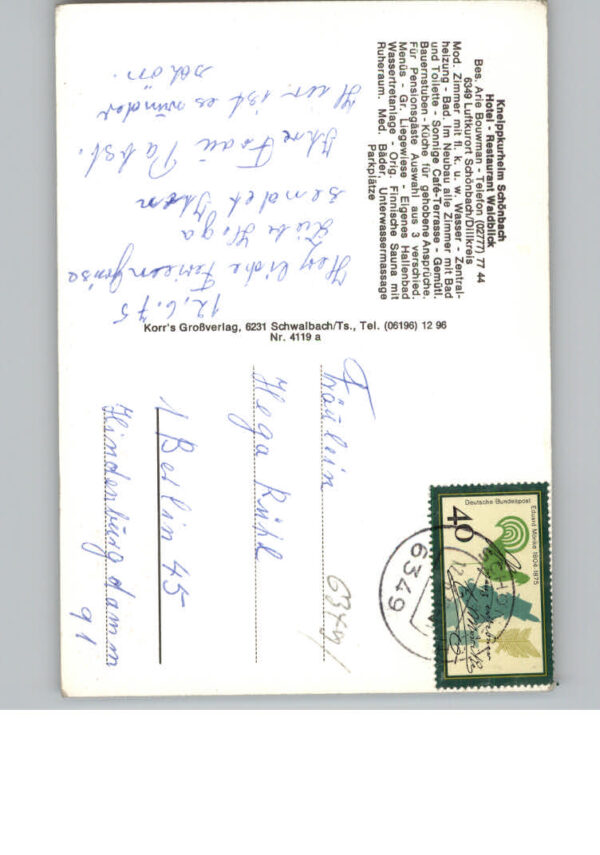 Kneippkurheim Schönbach
Hotel - Restaurant Waldblick
Bes. Arie Bouwman - Telefon (02777) 77 44
6349 Luftkurort Schönbach/Dillkreis
Mod. Zimmer mit fl. k. u. w. Wasser - Zentral-
heizung - Bad. Im Neubau alle Zimmer mit Bad
und Toilette - Sonnige Café-Terrasse - Gemütl.
Bauernstuben - Küche für gehobene Ansprüche.
Für Pensionsgäste Auswahl aus 3 verschied.
Menüs - Gr. Liegewiese - Eigenes Hallenbad
Wassertretanlage - Orig. Finnische Sauna mit
Ruheraum. Med. Bäder, Unterwassermassage
Parkplätze
12.6.75
Herzliche Feriengrüße
Liebe Hega
sendet Ihnen
Ihre Frau Pabst.
Hier ist es wunder
schön.
Korr's Großverlag, 6231 Schwalbach/Ts., Tel. (06196) 12 96
Nr. 4119 a
Deutsche Bundespost
Eduard Mörike 1804-1875
40
6349
Fräulein
Hega Kühl
1 Berlin 45
Hindenburgdamm
91